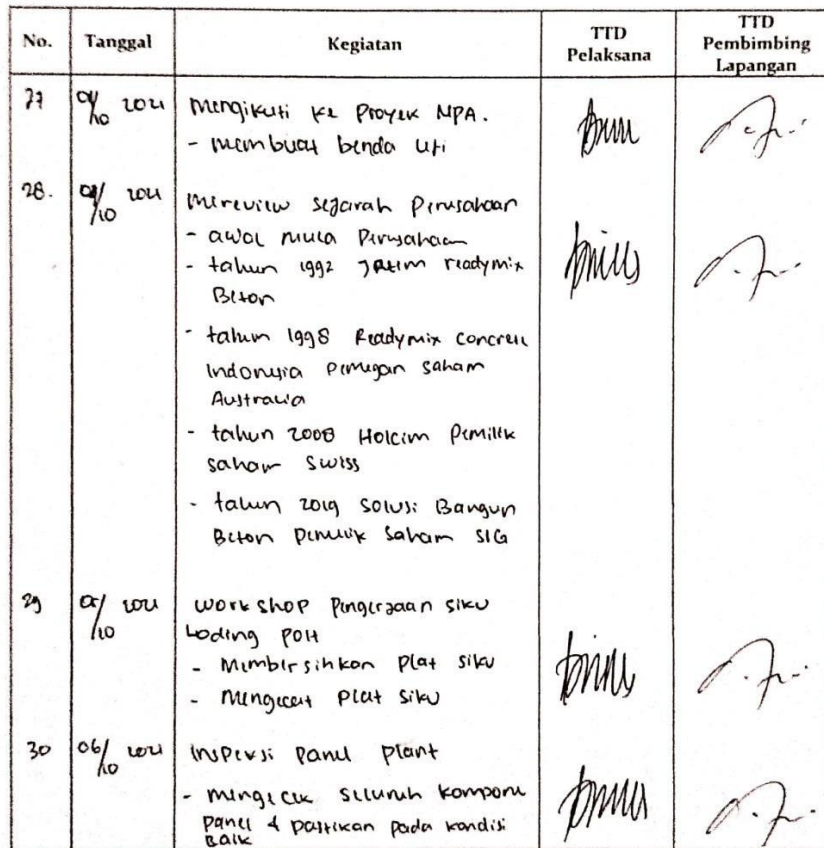 No. Tanggal Kegiatan TTD Pelaksana TTD Pembimbing Lapangan
27 /10 2021 Mengikuti ke Proyek MPA.
- membuat benda uji
28. /10 2021 Mereview sejarah Perusahaan
- awal mula Perusahaan
- tahun 1992 Jatim readymix
Beton
- tahun 1998 Readymix concrete
Indonesia Pemegan saham
Australia
- tahun 2008 Holcim Pemilik
saham Swiss
- tahun 2019 Solusi Bangun
Beton pemilik Saham SIG
29 05/10 2021 workshop Pengerjaan siku
Loding POH
- Membersihkan plat siku
- Mengecat Plat Siku
30 06/10 2021 inspeksi panel plant
- mengecek seluruh kompone
panel & pastikan pada kondisi
Baik